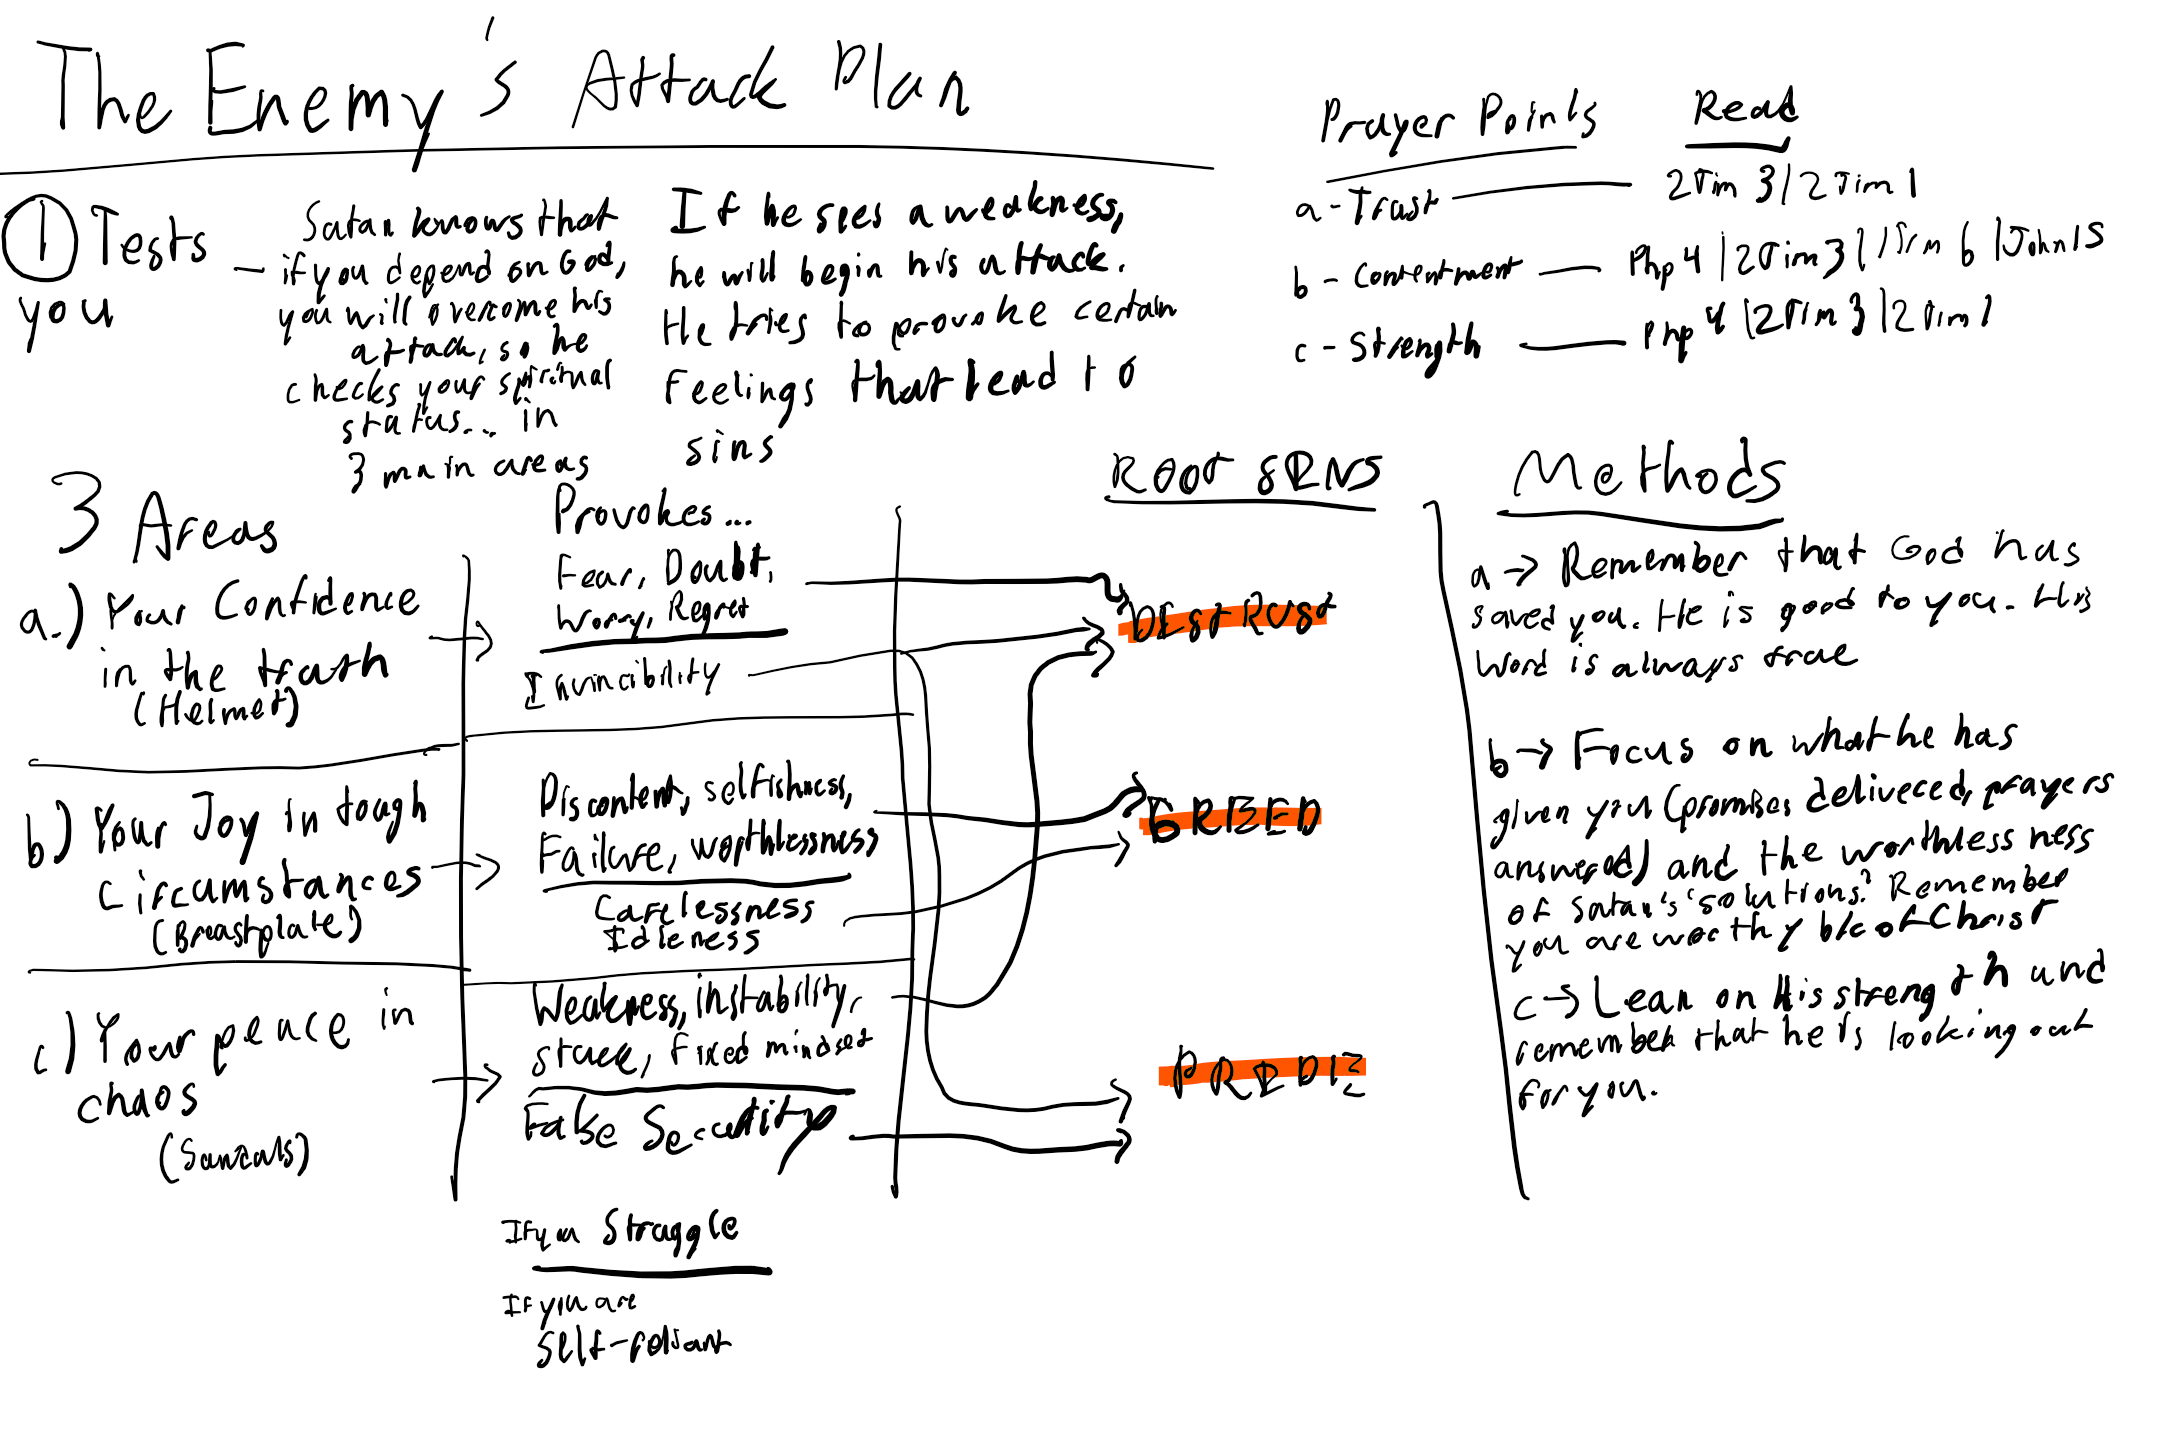 The Enemy's Attack Plan
① Tests you
Satan knows that
if you depend on God,
you will overcome his
attack, so he
checks your spiritual
status... in
3 main areas
If he sees a weakness,
he will begin his attack.
He tries to provoke certain
feelings that lead to
sins
Prayer Points
Read
a - Trust
2Tim 3 | 2Tim 1
b - Contentment
Php 4 | 2Tim 3 | 1Tim 6 | John 15
c - Strength
Php 4 | 2Tim 3 | 2Tim 1
3 Areas
a.) Your Confidence
in the truth
(Helmet)
b) Your Joy in tough
circumstances
(Breastplate)
c) Your peace in
chaos
(Sandals)
Provokes...
Fear, Doubt,
Worry, Regret
Invincibility
Discontent, selfishness,
Failure, worthlessness
Carelessness
Idleness
Weakness, instability,
stuck, fixed mindset
False Security
If you Struggle
If you are
self-reliant
ROOT SINS
DISTRUST
GREED
PRIDE
Methods
a → Remember that God has
saved you. He is good to you. His
word is always true
b → Focus on what he has
given you (promises delivered, prayers
answered) and the worthlessness
of Satan's "solutions." Remember
you are worthy b/c of Christ
c → Lean on His strength and
remember that he is looking out
for you.